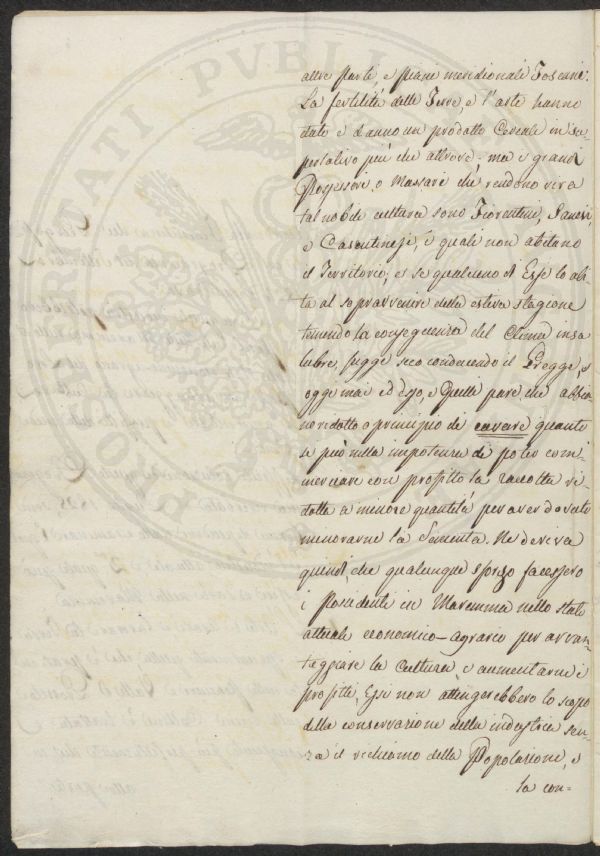 altre parti, e piani meridionali Toscani.
La fertilità delle Terre, e l'arte hanno
dato e danno un prodotto Cereale in su-
perlativo più che altrove, ma i grandi
Possessori, o Massari che rendono vera
tal nobile cultura sono Fiorentini, Sanesi,
e Casentinesi, i quali non abitano
il Territorio; e se qualcuno di Essi lo abi-
ta al sopravvenire della estiva stagione
temendo la conseguenza del Clima insa
lubre, fugge seco conducendo il Gregge, e
oggi mai ed esso, e quelli pare che abbia-
no ridotto a principio di cavare quanto
si può nella impotenza di poter com-
merciare con profitto la raccolta ri-
dotta a minore quantità per aver dovuto
minorarne la Sementa. Ne deriva
quindi, che qualunque sforzo facessero
i Possidenti in Maremma nello stato
attuale economico-agrario per avvan-
taggiare la Cultura, e aumentarne i
profitti, Essi non attingerebbero lo scopo
della conservazione della industria sen-
za il richiamo della Popolazione, e
la con-